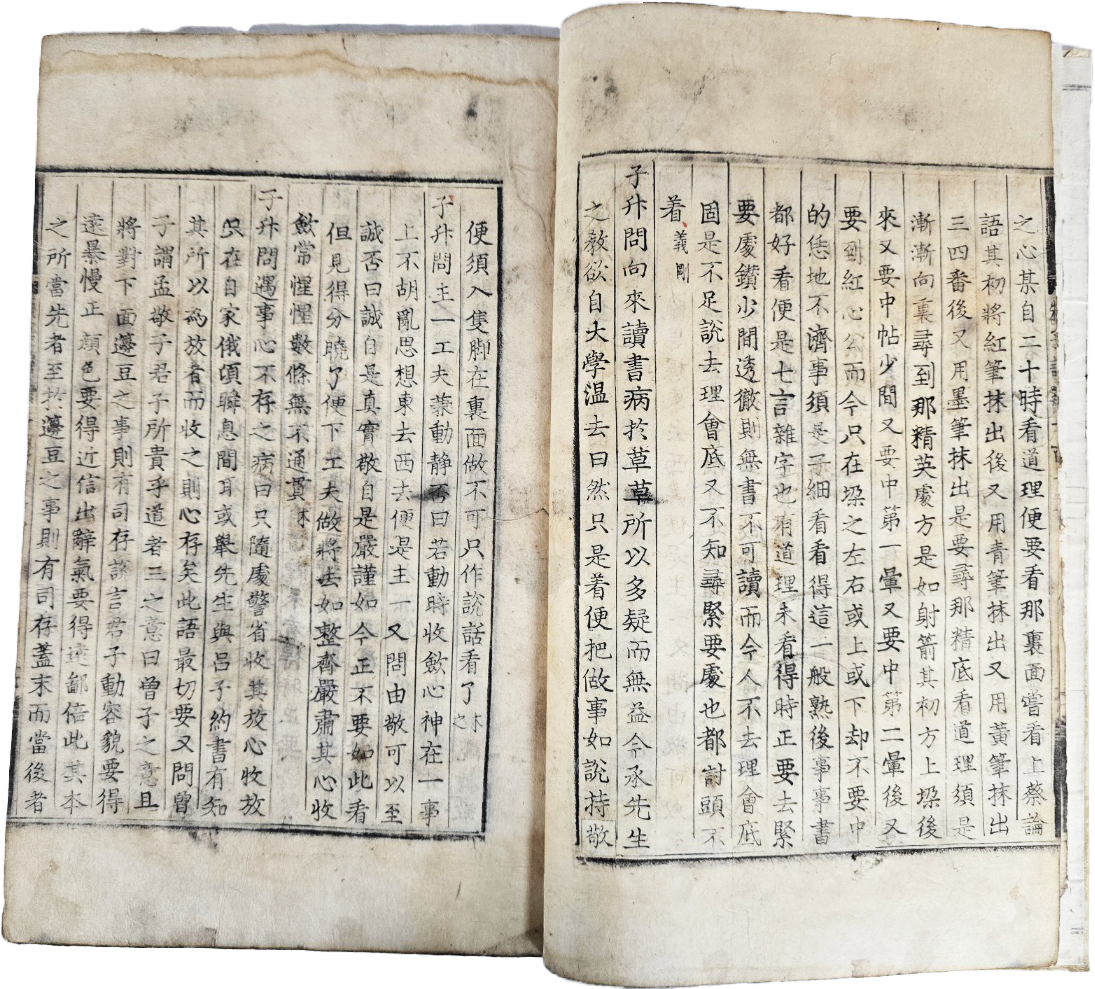 之心某自二十時看道理便要看那裏面嘗看上蔡論
語其初將紅筆抹出後又用青筆抹出又用黃筆抹出
三四番後又用墨筆抹出是要尋那精底看道理須是
漸漸向裏尋到那精英處方是如射箭其初方上垜後
來又要中帖少間又要中第一暈又要中第二暈後又
要到紅心公而今只在垜之左右或上或下却不要中
的恁地不濟事須是子細看看得這一般熟後事事書
都好看便是七言雜字也有道理未看得時正要去緊
要處鑽少間透徹則無書不可讀而今人不去理會底
固是不足說去理會底又不知尋緊要處也都討頭不
着義剛
子升問向來讀書病於草草所以多疑而無益今承先生
之教欲自大學温去曰然只是着便把做事如說持敬
便須入隻脚在裏面做不可只作說話看了木之
子升問主一工夫蒹動静否曰若動時收歛心神在一事
上不胡亂思想東去西去便是主一又問由敬可以至
誠否曰誠自是真實敬自是嚴謹如今正不要如此看
但見得分曉了便下工夫做將去如整齊嚴肅其心收
歛常惺惺數條無不通貫木
子升問遇事心不存之病曰只隨處警省收其放心收放
只在自家俄頃瞬息間耳或舉先生與呂子約書有知
其所以為放者而收之則心存矣此語最切要又問曾
子謂孟敬子君子所貴乎道者三之意曰曾子之意且
將對下面籩豆之事則有司存說言君子動容貌要得
遠暴慢正顔色要得近信出辭氣要得遠鄙倍此其本
之所當先者至於籩豆之事則有司存蓋末而當後者